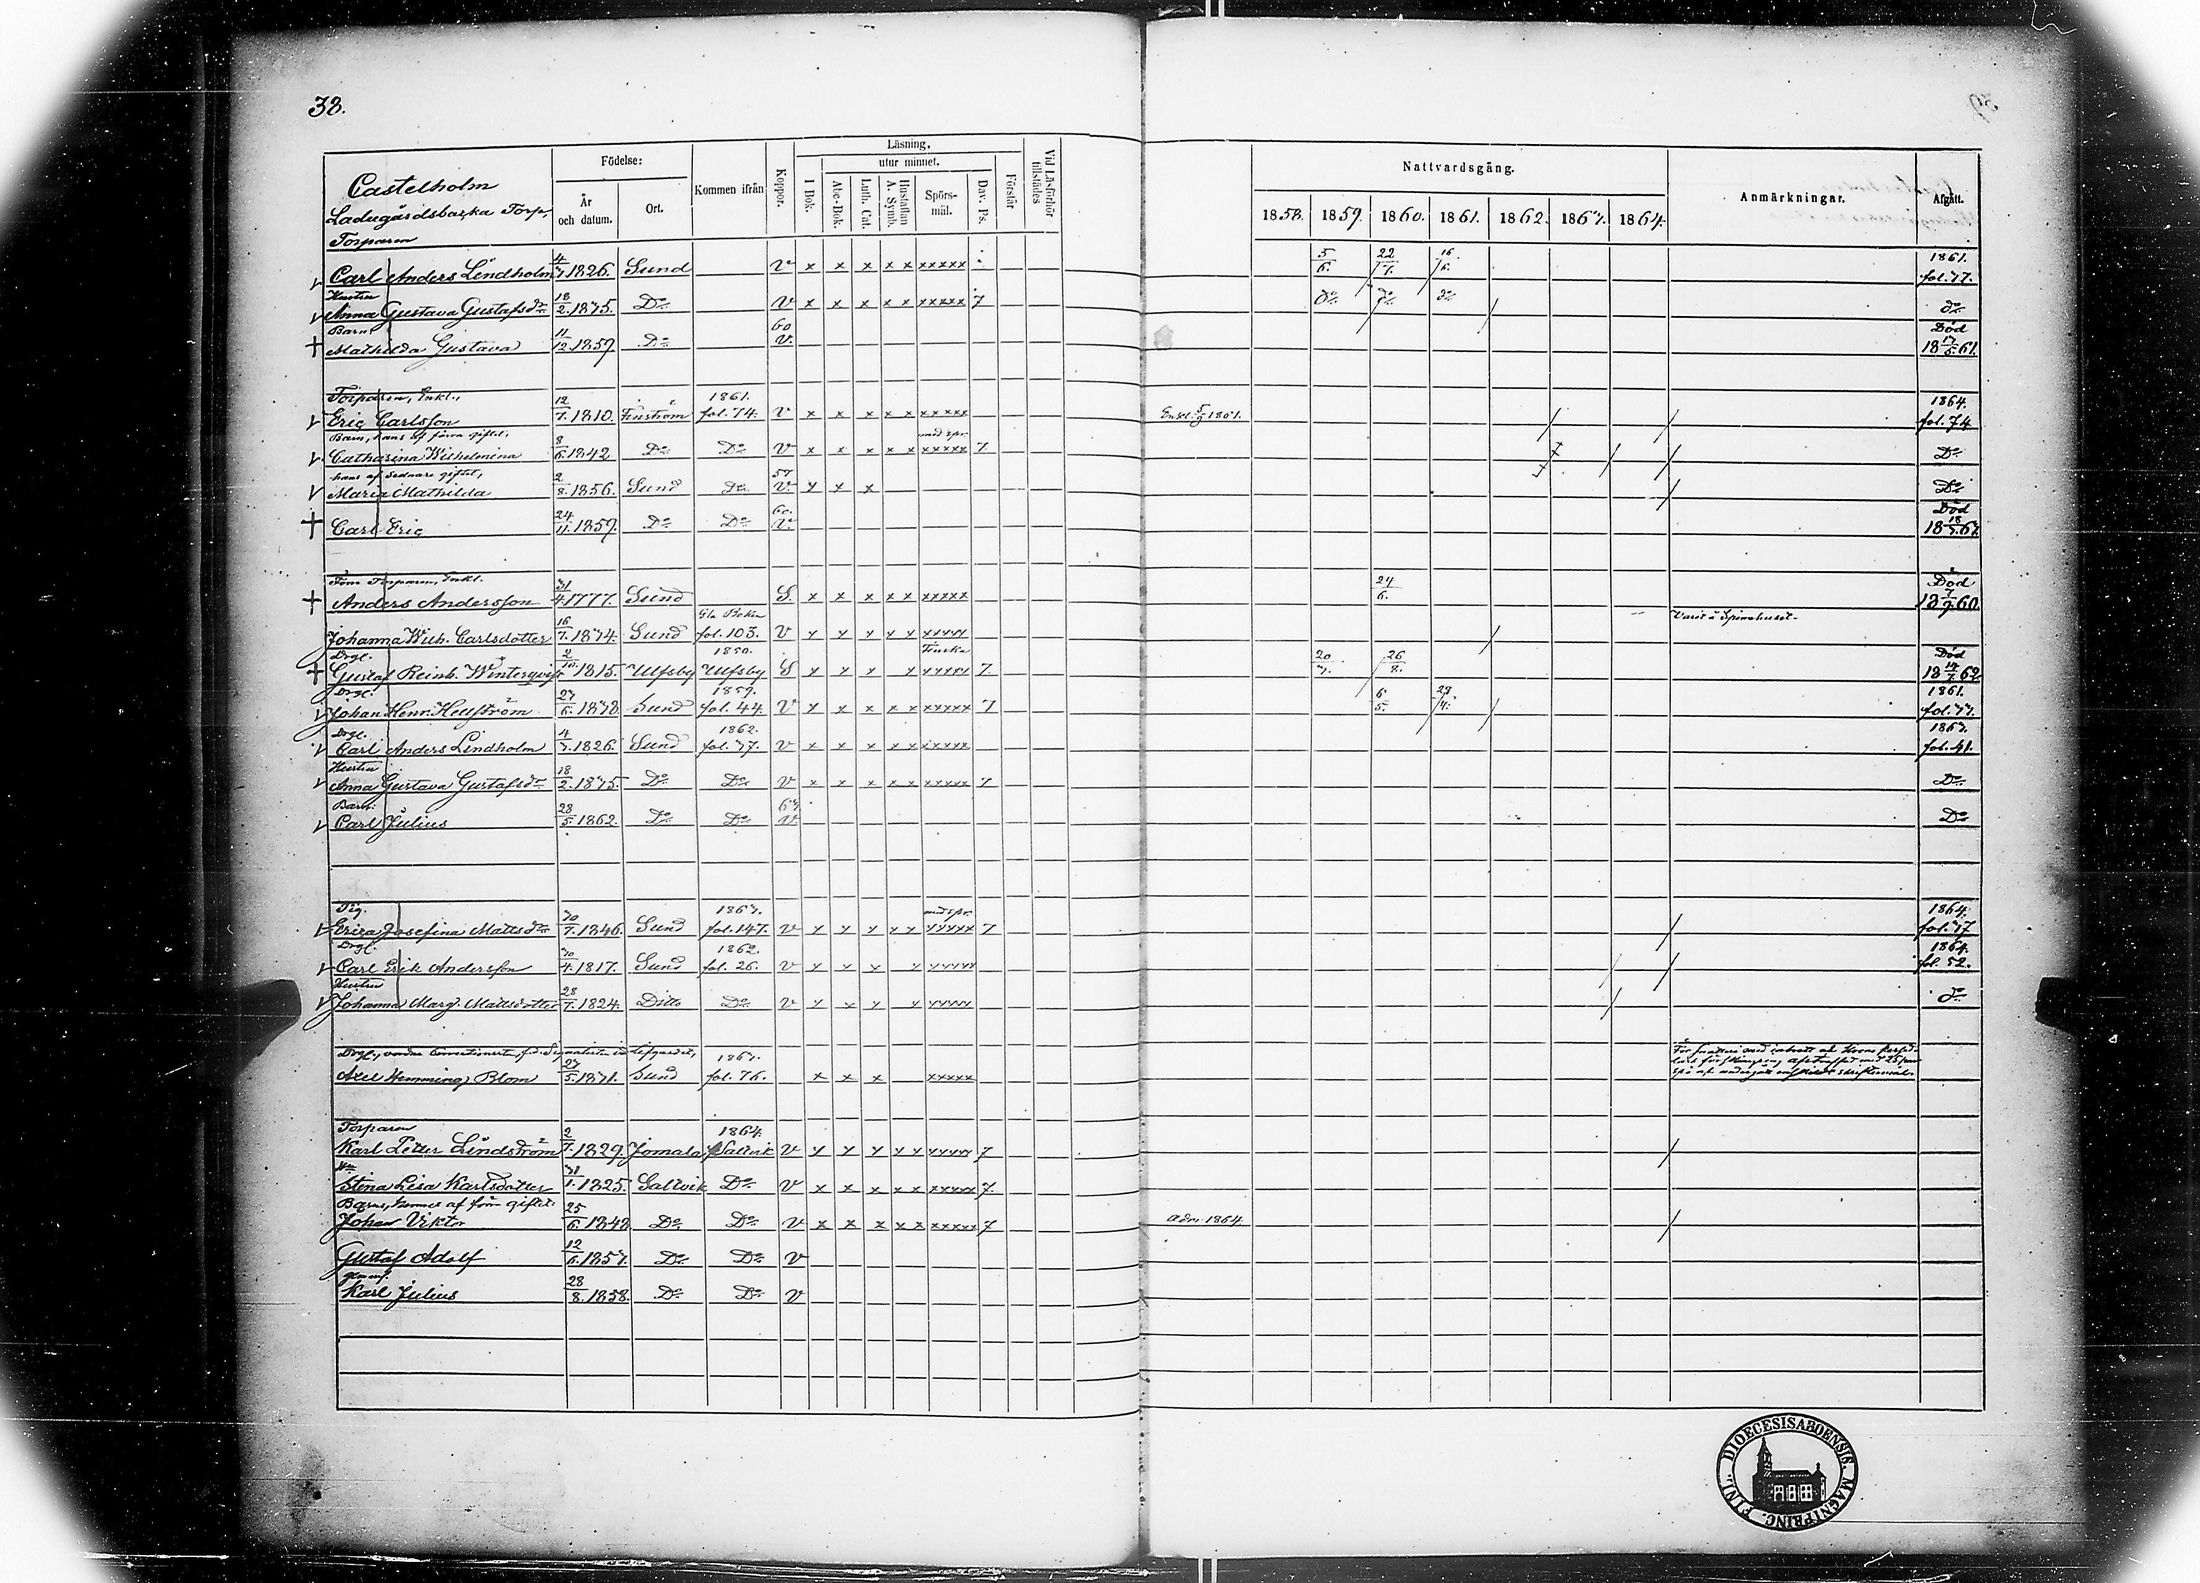 38.
Castelholm
Ladugårdsbacka Torp,
Torparen
Födelse:
År och datum.
Ort.
Kommen ifrån
Koppor.
Läsning.
utur minnet.
I Bok.
Abc-Bok.
Luth. Cat.
Hustaflan A. Symb.
Spörs-mål.
Dav. Ps.
Förstår
Vid Läsförhör tillstädes
Nattvardsgång.
1858. 1859. 1860. 1861. 1862. 1863. 1864.
Anmärkningar.
Afgått.
Carl Anders Lindholm 4/3 1826. Sund v x x x x x xxxxx 5/6. 22/7. 16/6. 1861. fol. 77.
Hustru
Anna Gustava Gustafsdr 18/2. 1835. Do v x x x x x xxxxx 7 do do do do
Barn
Mathilda Gustava 11/12. 1859. Do 60 v. Död 18 17/5. 61.
Torparen, Enkl.,
Eric Carlsson 12/7. 1810. Finström 1861. fol. 74. v x x x x x xxxxx Enkl. 5/9 1861. 1864. fol. 74
Barn, hans af förra giftet,
Catharina Wilhelmina 8/6. 1842 Do Do v x x x x x med spr. xxxxx 7. Do
hans af sednare giftet,
Maria Mathilda 2/8. 1856. Sund Do 57 v. x x x Do
Carl Eric 24/11. 1859. Do Do 60. v. Död 18 18/3. 63.
Förre Torparen, Enkl.
Anders Andersson 31/4 1777. Sund S. x x x x x xxxxx 24/6. Död 18 7/9. 60.
Johanna Wilh. Carlsdotter 16/7. 1834. Sund Gla Boken fol. 103. v x x x x x xxxxx Varit å Spinnhuset.
Drgl.
Gustaf Reinh. Winterqvist 2/10. 1815. Ulfsby 1850. Ulfsby S x x x x Finska xxxxx 7. 20/3. 26/8. Död 18 14/7. 62.
Drgl.
Johan Henr. Hellström 27/6. 1838. Sund 1859. fol. 44. v x x x x x xxxxx 7 6/5. 1861. fol. 77.
Drgl.
Carl Anders Lindholm 4/3. 1826. Sund 1862. fol. 77. v x x x x x xxxxx 1863. fol. 41.
Hustru
Anna Gustava Gustafsdr 18/2. 1835. Do Do v x x x x x xxxxx 7 Do
Barn:
Carl Julius 28/5. 1862. Do Do 63. v. Do
Pig.
Erica Josefina Mattsdr 30/7. 1846. Sund 1863. fol. 147. v x x x x x med spr. xxxxx 7 1864. fol. 77
Drgl.
Carl Erik Andersson 30/4. 1817. Sund 1862. fol. 26. v x x x x xxxxx 1864. fol. 52.
Hustru
Johanna Marg. Mattsdotter 28/7. 1824. Ditto Do v x x x x xxxxx do
Axel Hemming Blom 27/5. 1831. Sund 1863. fol. 76. x x x xxxxx
Torparen
Karl Petter Lindström 2/7. 1829. Jomala 1864. fr Saltvik v x x x x x xxxxx 7
Stina Lisa Karlsdotter 31/1. 1825. Saltvik Do v x x x x x xxxxx 7.
Barn, hennes af förra giftet:
Johan Viktor 25/6. 1848. Do Do v x x x x x xxxxx 7 Adm. 1864.
Gustaf Adolf 12/6. 1853. Do Do v
Karl Julius 28/8. 1858. Do Do v
FINL. DIOECESIS ABOENSIS. MAGN. PRINC.